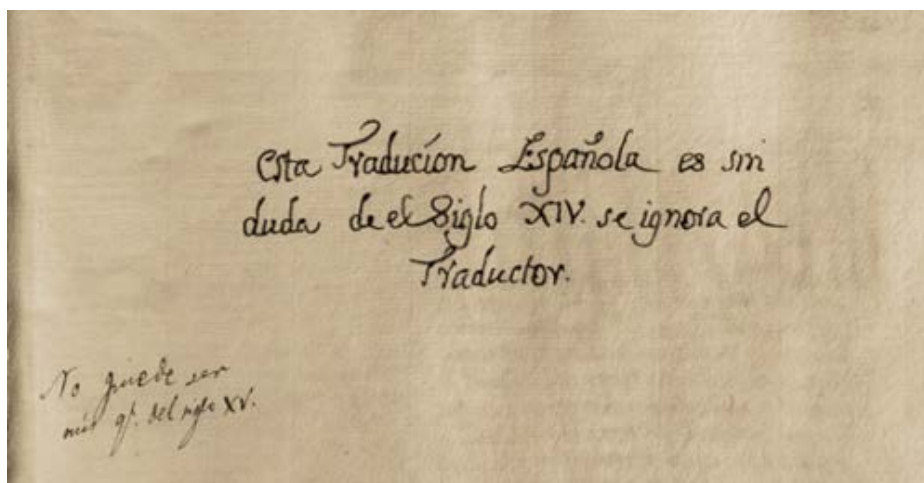 Esta Traducíon Española es sin
duda de el Siglo XIV. se ignora el
Traductor.
No puede ser
mas q. del siglo XV.